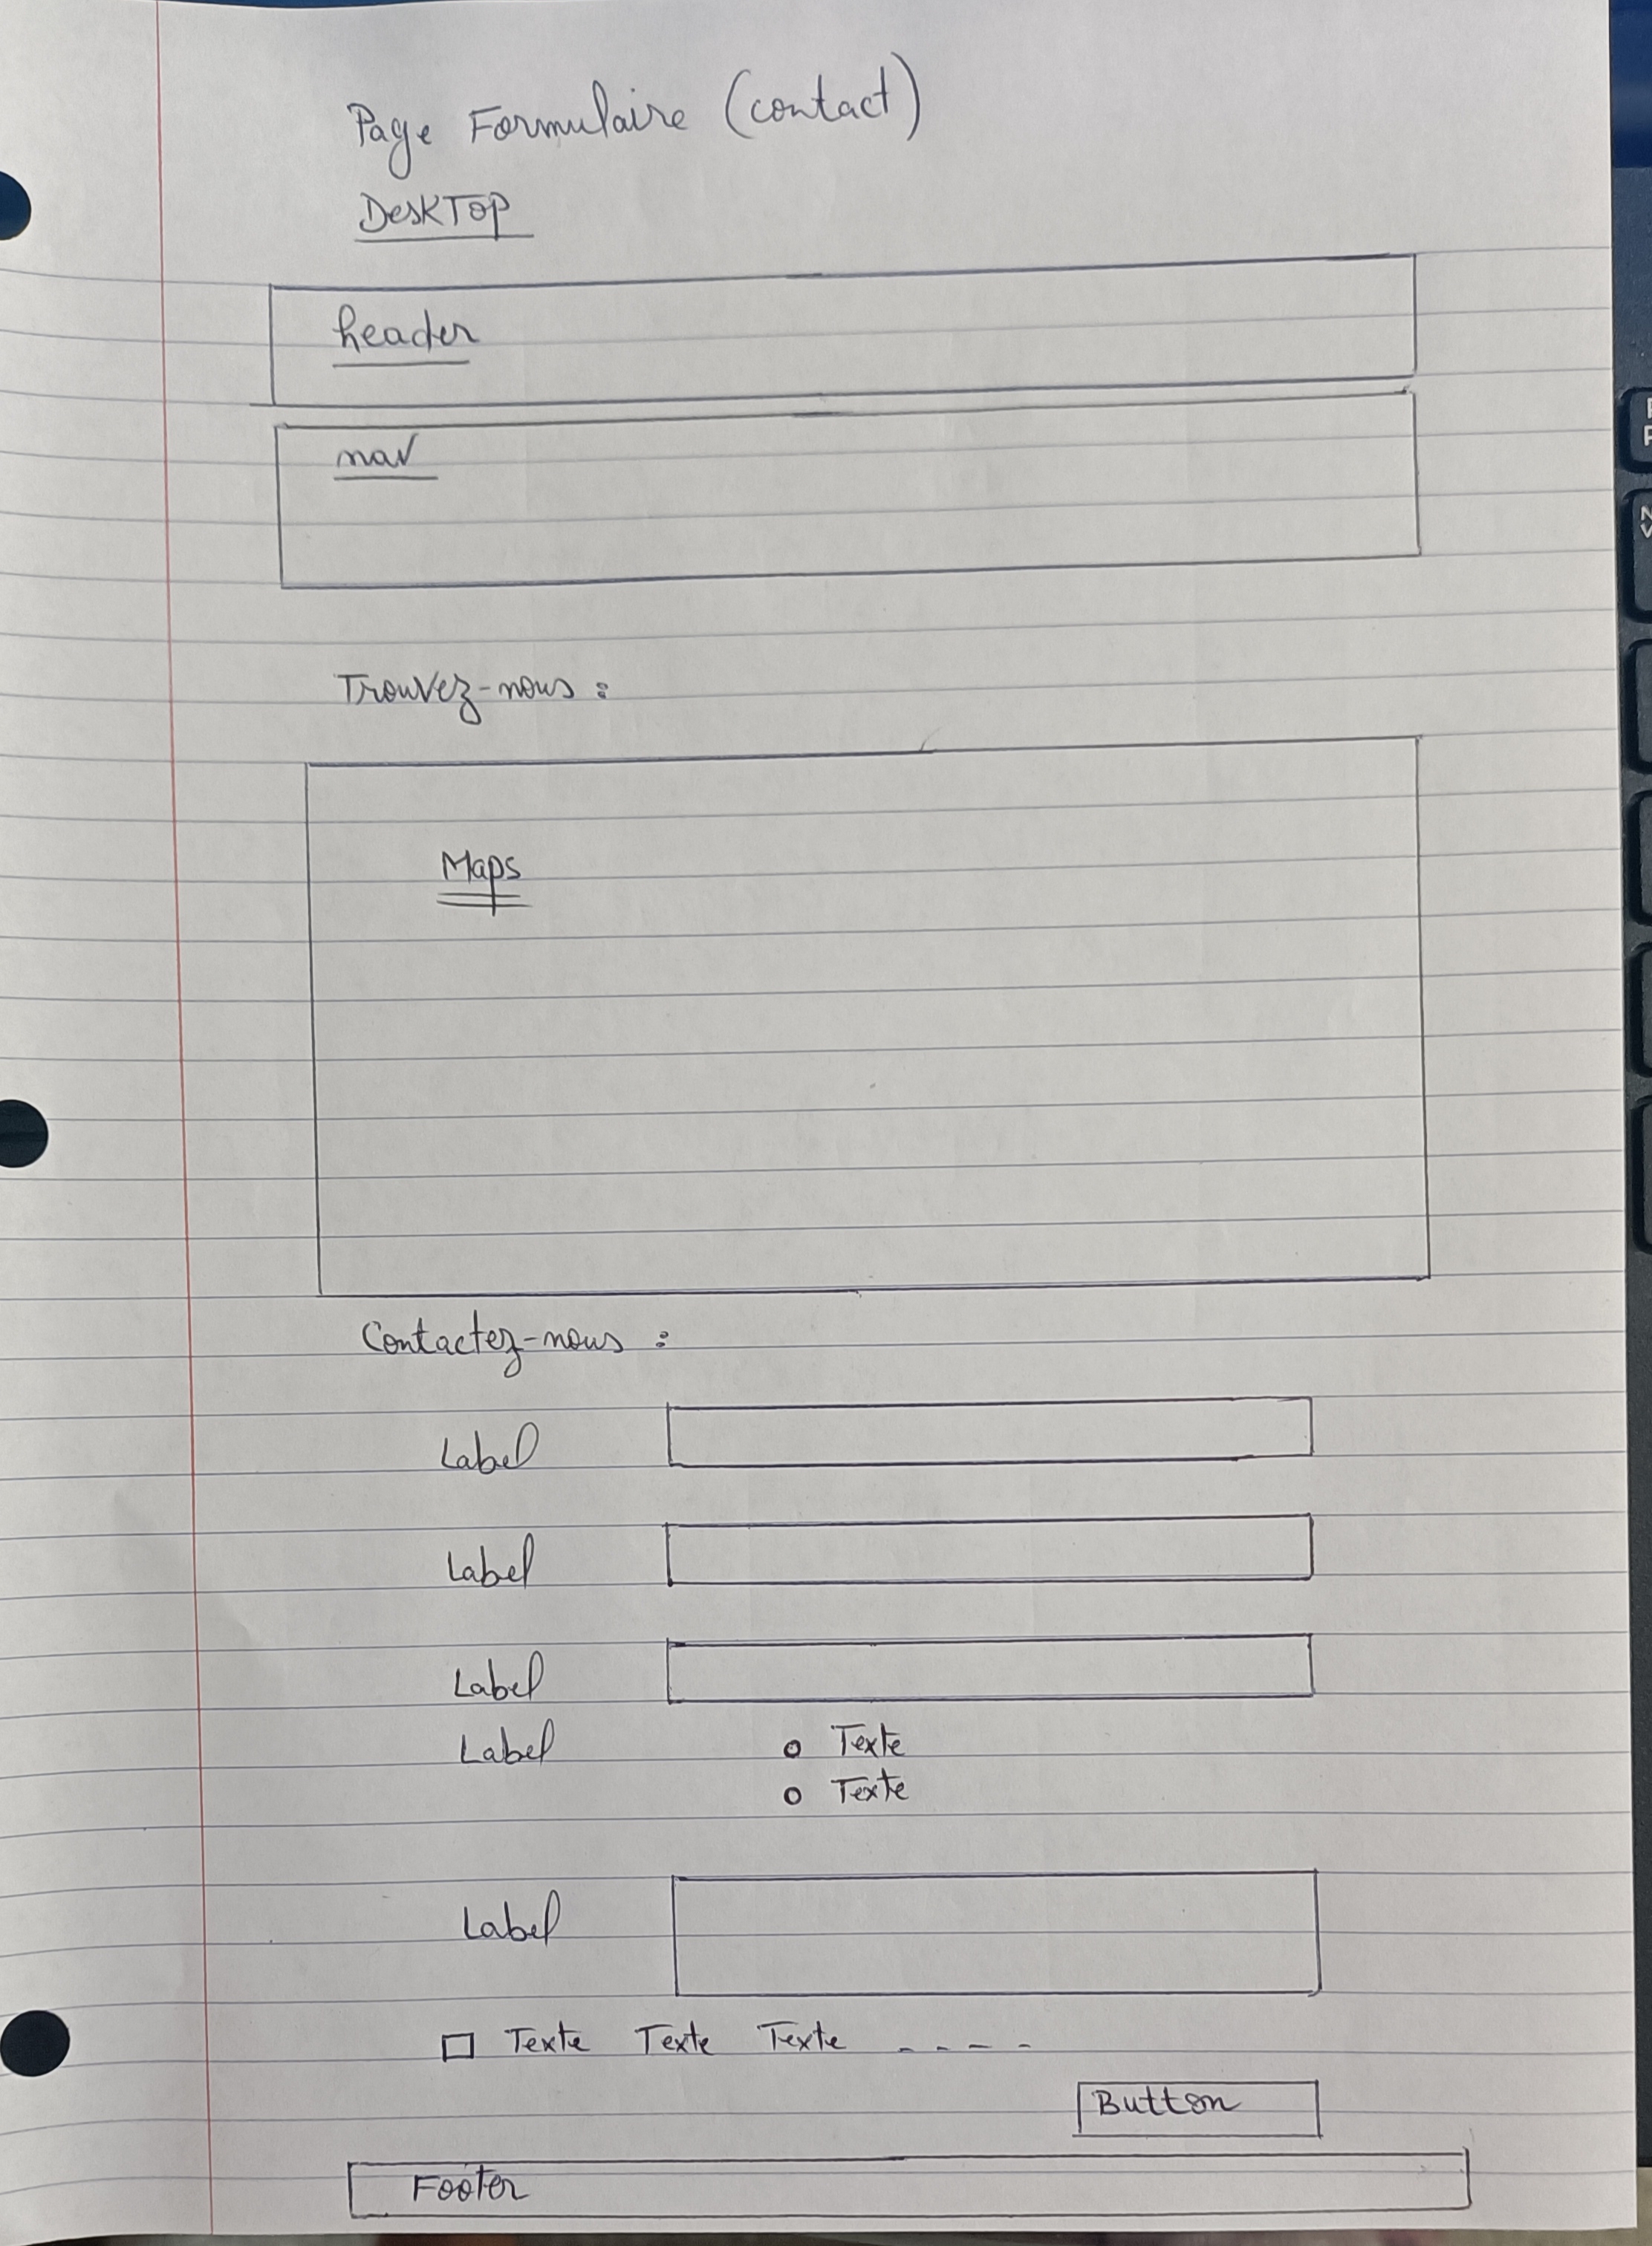 Page Formulaire (contact)
DeskTop
header
nav
Trouvez-nous :
Maps
Contactez-nous :
Label
Label
Label
Label
o Texte
o Texte
Label
Texte Texte Texte - - - -
Button
Footer